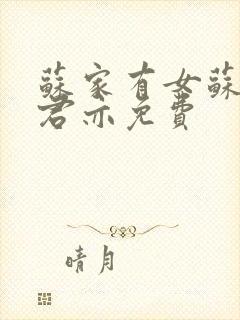 蘇家有女蘇
君亦免費
晴月